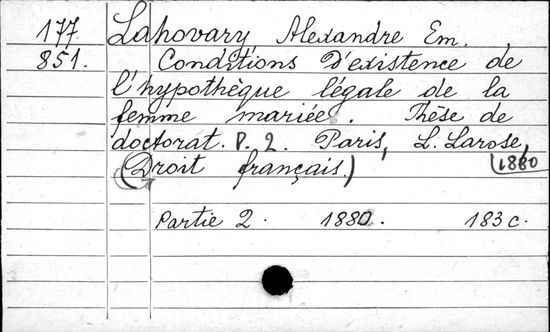 177 Lahovary Alexandre Em.
851. Conditions d'existence de
l'hypothèque légale de la
femme mariée. Thèse de
doctorat. P. 2. Paris, L. Larose,
(Droit français.) 1880
Partie 2. 1880. 183 c.